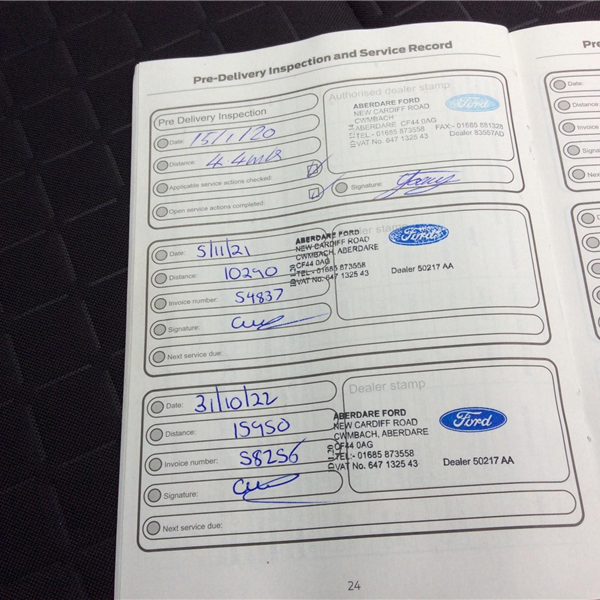 Pre-Delivery Inspection and Service Record
Pre Delivery Inspection
Date: 15/1/20
Distance: 44mls
Applicable service actions checked:
Open service actions completed:
Authorised dealer stamp
ABERDARE FORD
NEW CARDIFF ROAD
CWMBACH
ABERDARE CF44 0AG
TEL - 01685 873558 FAX - 01685 881328
VAT No. 647 1325 43 Dealer 83557AD
Ford
Signature:
Date: 5/11/21
Distance: 10290
Invoice number: 54837
Signature:
Next service due:
ABERDARE FORD
NEW CARDIFF ROAD
CWMBACH, ABERDARE
CF44 0AG
TEL:- 01685 873558
VAT No. 647 1325 43
D 1.20
Ford
Dealer 50217 AA
Date: 31/10/22
Distance: 15950
Invoice number: 58256
Signature:
Next service due:
Dealer stamp
ABERDARE FORD
NEW CARDIFF ROAD
CWMBACH, ABERDARE
CF44 0AG
TEL:- 01685 873558
VAT No. 647 1325 43
D 1.20
Ford
Dealer 50217 AA
24
Pre
Date:
Distance
Invoice
Signa
Next